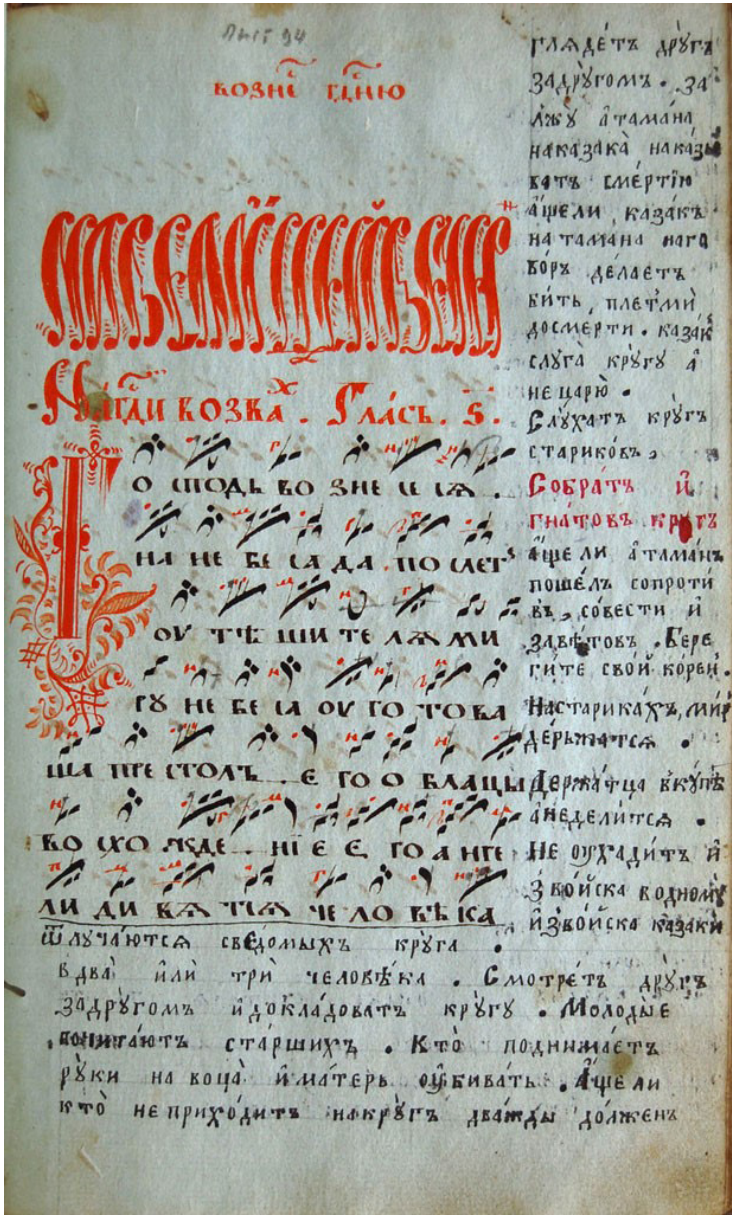 Лист 94
вознⷭ҇е гдⷭ҇ню
На гд҇и возваⷯ. Гласъ. ѕ҃.
о сподь во зне се сѧ .
на не бе са да . по слет
оу тѣ ши те лѧ ми
ру не бе са оу го това
ша пре столъ . е го о блацы
во схо жде . нїе е го а нге
ли ди вѧ тсѧ че ло вѣ ка
глѧде́тъ дрꙋ́гъ
задрꙋ́гомъ . за
лжꙋ̀ а҆тама́на
наказака̀ нака́зы
ватъ сме́ртїю
а҆́щели каза́къ
на тамана наго
во́ръ дѣ́лаетъ
бить плетми̑
досме́рти . казак
слуга̀ крꙋгꙋ а҆̀
не царю̀ .
Слꙋ́хатъ крꙋгъ
стариков̾ъ .
Собра́тъ и҆
гна́товъ крꙋгъ
а҆́ще ли а҆тама́нъ
поше́лъ сопроти́
въ , со́вести и҆
завѣ́товъ . Бере
ги́те свой ко́рен .
Настарика́хъ, мир
де́рьжатсѧ .
Держа́тца вкꙋ́пѣ
а҆неделитсѧ .
Не оухади́тъ и҆
З во́йска водномꙋ̀
и҆зво́йска казаки
Ѿлуча́ютсѧ све́домыхъ круга .
вдва̀ и҆лѝ трѝ человѣ́ка . Смотре́тъ дрꙋ́гъ
задрꙋ́гомъ и҆докла́доватъ крꙋгꙋ . Молоды́е
почита́ютъ ста́ршихъ . Кто̀ поднима́етъ
рꙋ́ки на воца̀ и҆матерь оу҆бива́тъ . А҆́ще ли
кто̀ не прихо́дитъ накрꙋ́гъ два́жды до́лженъ